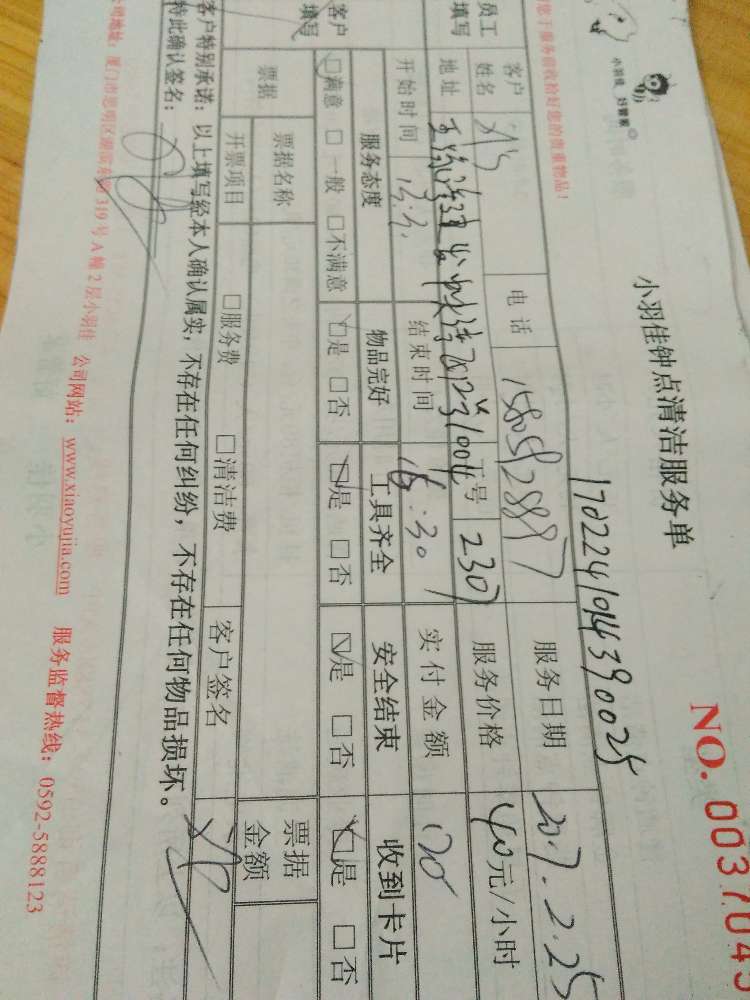 小羽佳 好管家
NO. 0037045
小羽佳钟点清洁服务单
您于服务前收拾好您的贵重物品!
员工填写
客户姓名
电话
服务日期 2017.2.25
地址
工号 2307
服务价格 40元/小时
开始时间 13:30
结束时间 16:30
实付金额 120
客户填写
服务态度 物品完好 工具齐全 安全结束 收到卡片
□满意 □一般 □不满意 □是 □否 □是 □否 □是 □否 □是 □否
票据
票据名称
票据金额
开票项目 □服务费 □清洁费 客户签名
客户特别承诺:以上填写经本人确认属实,不存在任何纠纷,不存在任何物品损坏。
特此确认签名:
公司地址:厦门市思明区湖滨东路319号A幢2层小羽佳 公司网站:www.xiaoyujia.com 服务监督热线:0592-5888123